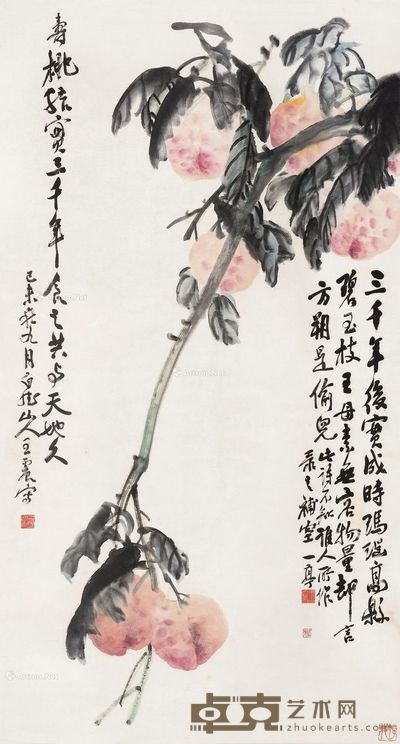 三千年後實成時瑪瑙高縣
碧玉枝王母素無容物量却言
方朔是偷兒
此詩不知誰人所作
录之補空一亭
壽桃結實三千年食之共与天地久
己未秋九月白龍山人王震寫
卓克艺术网
www.zhuokearts.com